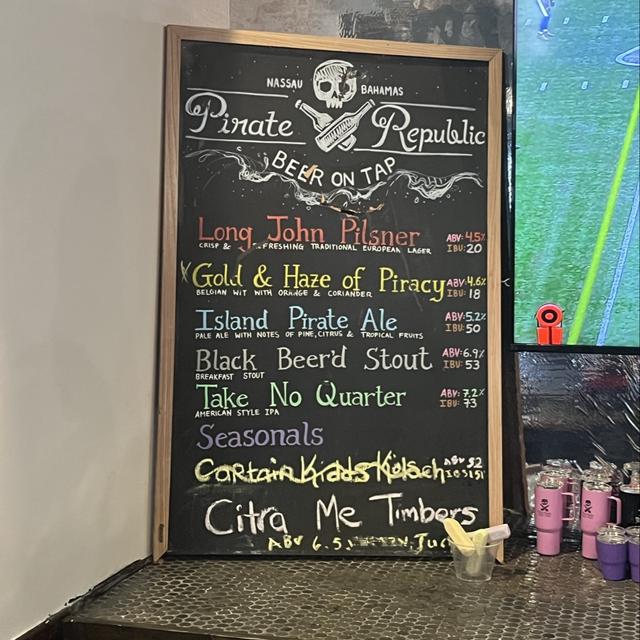 NASSAU BAHAMAS
Pirate Republic
BEER ON TAP
Long John Pilsner ABV: 4.5%
CRISP & REFRESHING TRADITIONAL EUROPEAN LAGER IBU: 20
Gold & Haze of Piracy ABV: 4.6%
BELGIAN WIT WITH ORANGE & CORIANDER IBU: 18
Island Pirate Ale ABV: 5.2%
PALE ALE WITH NOTES OF PINE, CITRUS & TROPICAL FRUITS IBU: 50
Black Beer'd Stout ABV: 6.9%
BREAKFAST STOUT IBU: 53
Take No Quarter ABV: 7.2%
AMERICAN STYLE IPA IBU: 73
Seasonals
Captain Kidds Kolsch ABV 52
Citra Me Timbers
ABV 6.5